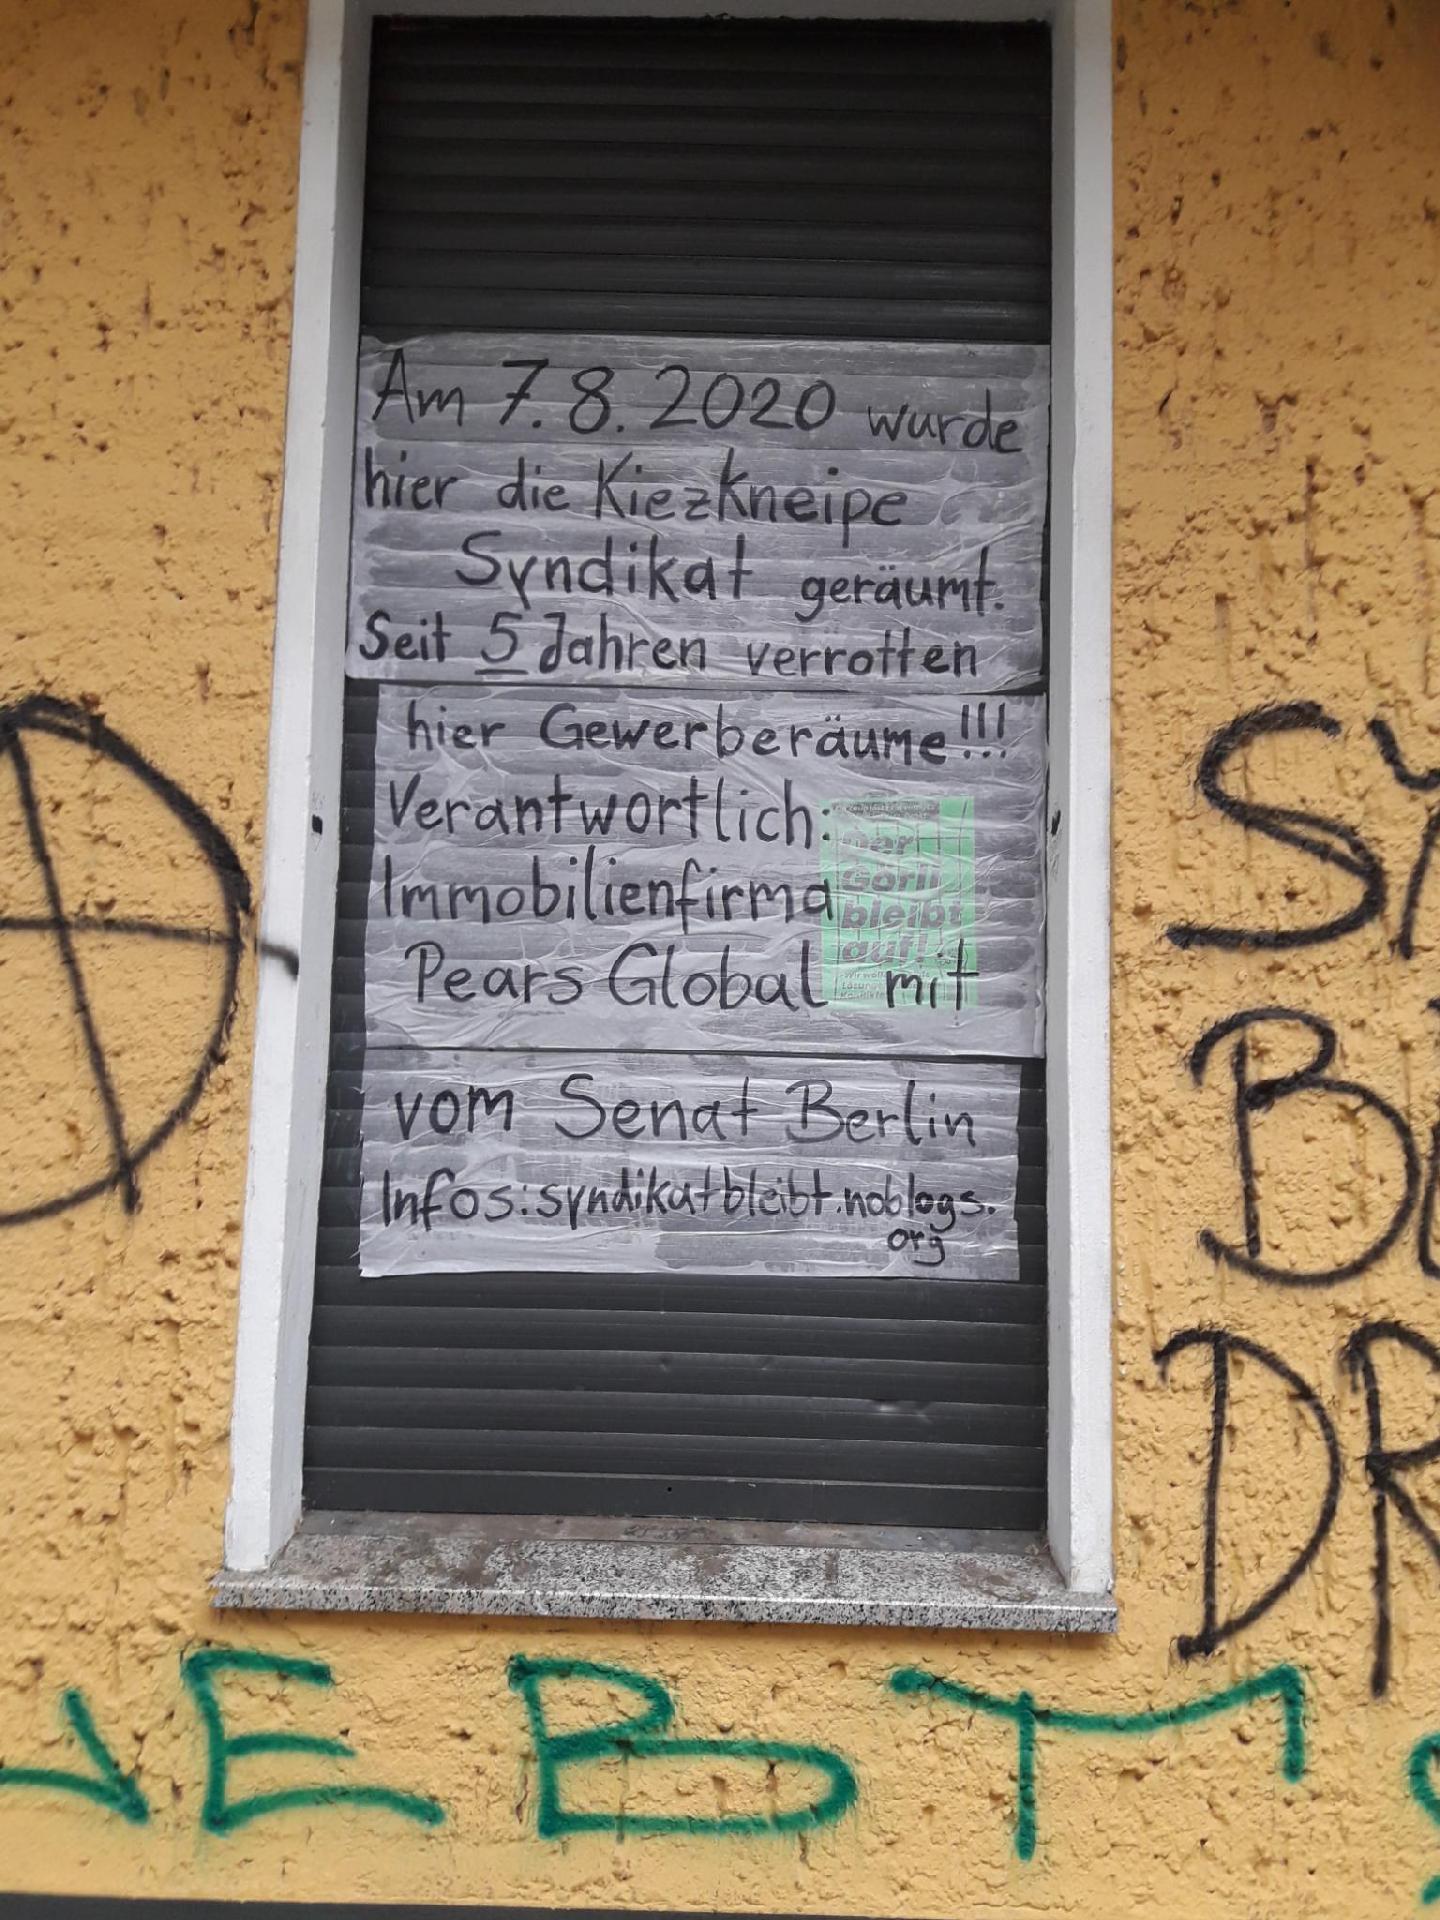 Am 7.8.2020 wurde
hier die Kiezkneipe
Syndikat geräumt.
Seit 5 Jahren verrotten
hier Gewerberäume!!!
Verantwortlich:
Immobilienfirma
Pears Global mit
vom Senat Berlin
Infos: syndikatbleibt.noblogs.
org
Der
Görli
bleibt
auf!
SY
B
DR
EBT